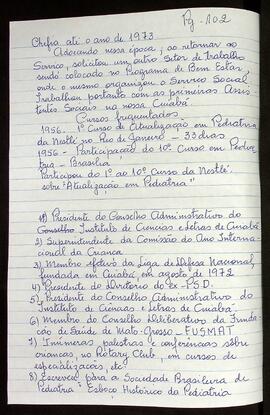 Pg - 102
Chefia até o ano de 1973
Adorando nessa época, ao retornar ao
Serviço, solicitou um outro Setor de Trabalho
sendo colocado no Programa de Bem Estar,
onde o mesmo organizou o Serviço Social
Trabalhou portanto com as primeiras Assis
tentes Sociais na nossa Cuiabá
Cursos frequentados
1956. 1º Curso de Atualização em Pediatria
da Nestlé no Rio de Janeiro - 33 dias
1956 - Participação do 10º Curso em Pedia
tria - Brasília
Participou do 1º ao 10º Curso da Nestlé.
sobre "Atualização em Pediatria"
1) Presidente do Conselho Administrativo do
Conselho Instituto de Ciencias e Letras de Cuiabá
2) Superintendente da Comissão do Ano Interna
cional da Criança
3) Membro efetivo da Liga de Defesa Nacional
fundada em Cuiabá, em agosto de 1972
4) Presidente do Diretorio do ex - P.S.D.
5) Presidente do Conselho Administrativo do
Instituto de Ciências e Letras de Cuiabá.
6) Membro do Conselho Deliberativo da Funda
ção de Saúde de Mato-Grosso - FUSMAT
7) Inúmeras palestras e conferências sôbre
crianças, no Rotary Club, em cursos de
especializações, etc
8) Escreveu para a Sociedade Brasileira de
Pediatria "Esboço Histórico da Pediatria